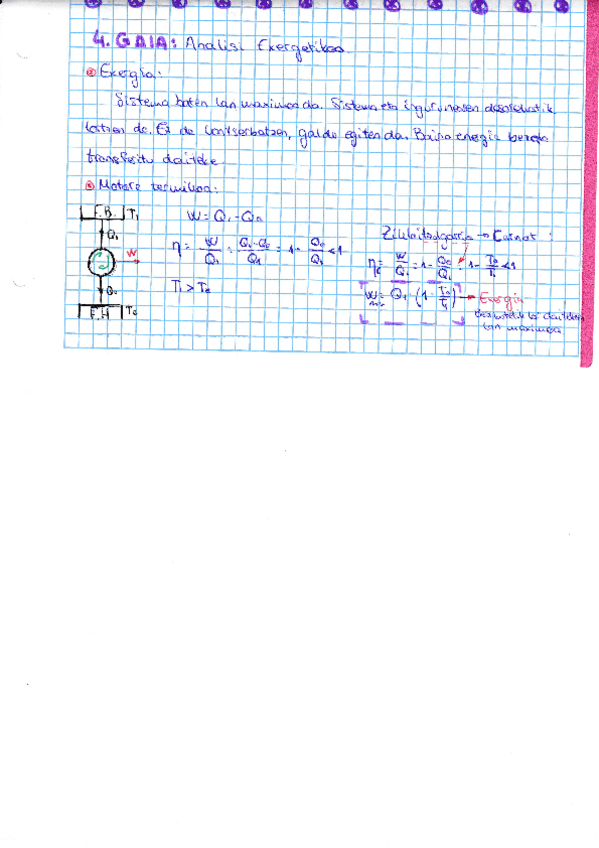 4. GAIA: Analisi Exergetikoa
Exergia:
Sistema baten lan maximoa da. Sistema eta ingurunearen desorekatik
lortzen da. Ez da kontserbatzen, galdu egiten da. Baina energia bezala
transferitu daiteke.
Motore termikoa:
F.B. T₁
Q₁
W
Q₀
F.H T₀
W = Q₁ - Q₀
η = W/Q₁ = (Q₁-Q₀)/Q₁ = 1 - Q₀/Q₁ < 1
T₁ > T₀
Ziklo itzulgarria → Carnot :
η_c = W/Q₁ = 1 - Q₀/Q₁ = 1 - T₀/T₁ < 1
W = Q₁ · (1 - T₀/T₁) → Exergia
lan maximoa